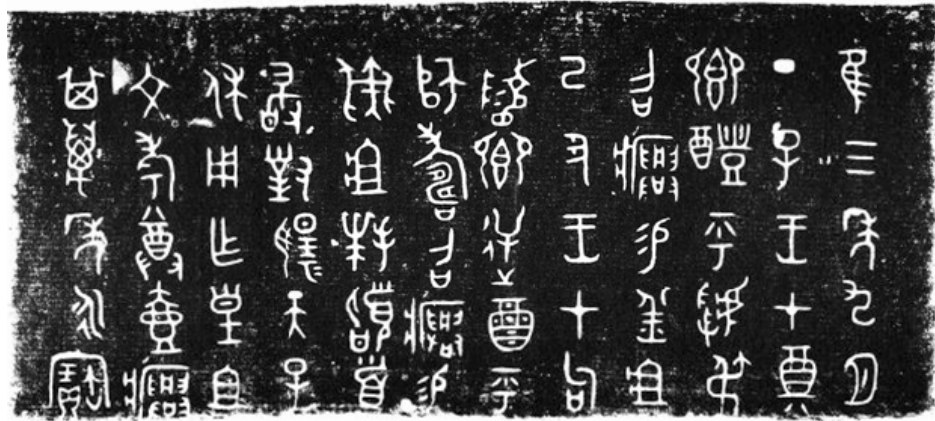 隹三年九月
丁子王才奠
鄉醴乎虢弔
召𤼈易羔俎
己丑王才句
陵鄉逆酉乎
師壽召𤼈易
彘俎拜稽首
敢對揚天子
休用乍皇且
文考尊壺𤼈
其萬年永寶